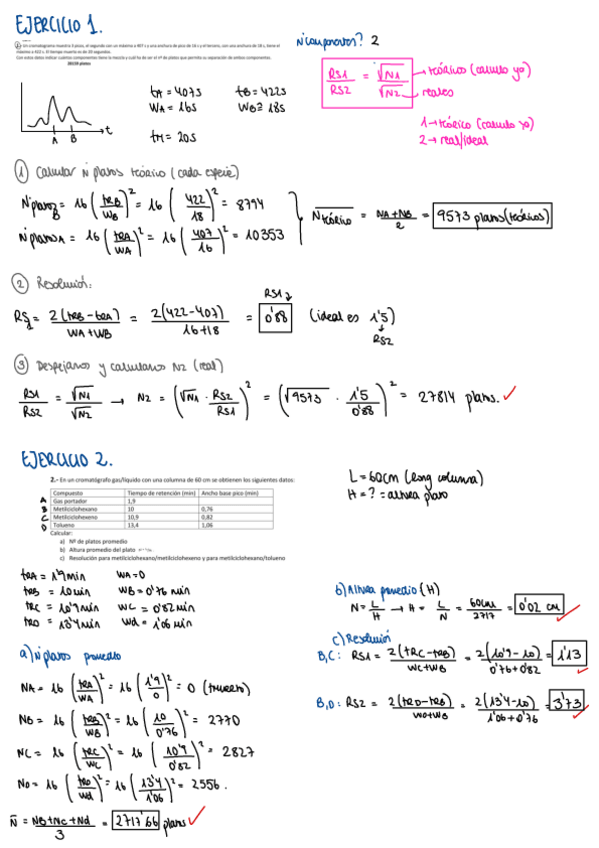 EJERCICIO 1.
1.- Un cromatograma muestra 3 picos, el segundo con un máximo a 407 s y una anchura de pico de 16 s y el tercero, con una anchura de 18 s, tiene el
máximo a 422 s. El tiempo muerto es de 20 segundos.
Con estos datos indicar cuántos componentes tiene la mezcla y cuál ha de ser el nº de platos que permita su separación de ambos componentes.
Nº componentes? 2
RS1 / RS2 = √N1 / √N2
→ teóricos (calculo yo)
→ reales
1 → teórico (calculo yo)
2 → real/ideal
tA = 407s tB = 422s
WA = 16s WB = 18s
tM = 20s
A B t
① Calcular Nº platos teórico (cada especie)
Nº platos B = 16 (tRB / WB)² = 16 (422 / 18)² = 8794
Nº platos A = 16 (tRA / WA)² = 16 (407 / 16)² = 10353
N teórico = NA + NB / 2 = 9573 platos (teóricos)
② Resolución:
RS1 = 2(tRB - tRA) / WA + WB = 2(422 - 407) / 16 + 18 = 0'88 (ideal es 1'5)
RS1
RS2
③ Despejamos y calculamos N2 (real)
RS1 / RS2 = √N1 / √N2 → N2 = (√N1 · RS2 / RS1)² = (√9573 · 1'5 / 0'88)² = 27814 platos.
EJERCICIO 2.
2.- En un cromatógrafo gas/líquido con una columna de 60 cm se obtienen los siguientes datos:
Compuesto Tiempo de retención (min) Ancho base pico (min)
A Gas portador 1,9
B Metilciclohexano 10 0,76
C Metilciclohexeno 10,9 0,82
D Tolueno 13,4 1,06
Calcular:
a) Nº de platos promedio
b) Altura promedio del plato
c) Resolución para metilciclohexano/metilciclohexeno y para metilciclohexano/tolueno
L = 60cm (long columna)
H = ? = altura plato
tRA = 1'9 min WA = 0
tRB = 10 min WB = 0'76 min
tRC = 10'9 min WC = 0'82 min
tRD = 13'4 min Wd = 1'06 min
a) Nº platos promedio
NA = 16 (tRA / WA)² = 16 (1'9 / 0)² = 0 (tmuerto)
NB = 16 (tRB / WB)² = 16 (10 / 0'76)² = 2770
NC = 16 (tRC / WC)² = 16 (10'9 / 0'82)² = 2827
ND = 16 (tRD / Wd)² = 16 (13'4 / 1'06)² = 2556.
N̄ = NB + NC + Nd / 3 = 2717'66 platos
b) Altura promedio (H)
N = L / H → H = L / N = 60cm / 2717 = 0'02 cm
c) Resolución
B,C: RS1 = 2(tRC - tRB) / WC + WB = 2(10'9 - 10) / 0'76 + 0'82 = 1'13
B,D: RS2 = 2(tRD - tRB) / WD + WB = 2(13'4 - 10) / 1'06 + 0'76 = 3'73